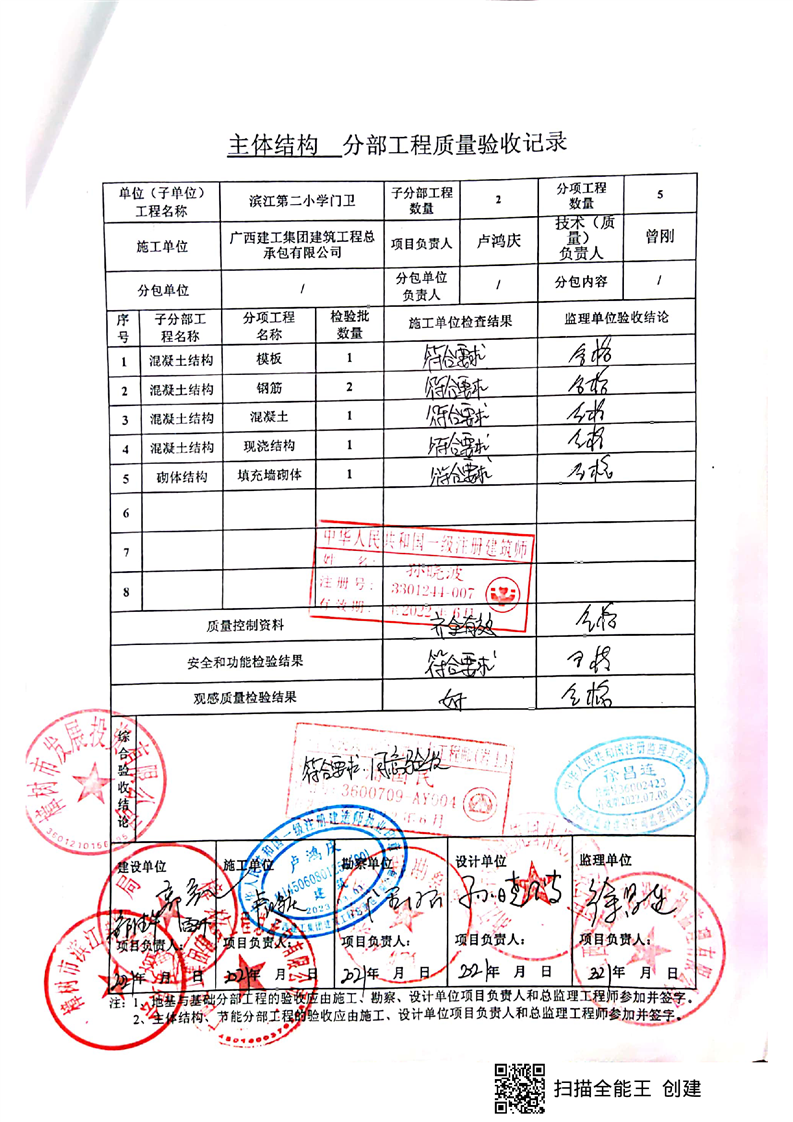 主体结构 分部工程质量验收记录
单位（子单位）工程名称 滨江第二小学门卫 子分部工程数量 2 分项工程数量 5
施工单位 广西建工集团建筑工程总承包有限公司 项目负责人 卢鸿庆 技术（质量）负责人 曾刚
分包单位 / 分包单位负责人 / 分包内容 /
序号 子分部工程名称 分项工程名称 检验批数量 施工单位检查结果 监理单位验收结论
1 混凝土结构 模板 1 符合要求 合格
2 混凝土结构 钢筋 2 符合要求 合格
3 混凝土结构 混凝土 1 符合要求 合格
4 混凝土结构 现浇结构 1 符合要求 合格
5 砌体结构 填充墙砌体 1 符合要求 合格
6
7
8
中华人民共和国一级注册建筑师
姓 名： 孙晓波
注册号： 3301244-007
有效期： 2022年6月
质量控制资料 齐全有效 合格
安全和功能检验结果 符合要求 合格
观感质量检验结果 好 合格
综合验收结论 符合要求 同意验收
3600709-AY004
徐昌连
36002423
2023.07.08
樟树市发展投资有限公司
卢鸿庆
建筑
建设单位 施工单位 勘察单位 设计单位 监理单位
项目负责人： 项目负责人： 项目负责人： 项目负责人： 项目负责人：
2021年 月 日 2021年 月 日 2021年 月 日 2021年 月 日 2021年 月 日
樟树市滨江
注：1、地基与基础分部工程的验收应由施工、勘察、设计单位项目负责人和总监理工程师参加并签字。
2、主体结构、节能分部工程的验收应由施工、设计单位项目负责人和总监理工程师参加并签字。
扫描全能王 创建